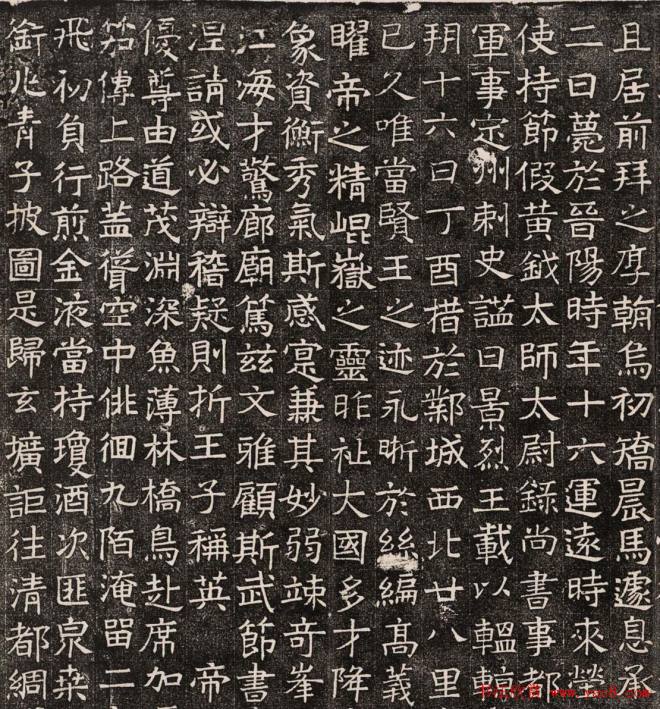 且居前拜之序翰烏初矯晨馬遽息承
二日薨於晉陽時年十六運遠時來塋
使持節假黃鉞太師太尉錄尚書事都
軍事定州刺史謚曰景烈王載以轀輬
朔十六日丁酉措於鄴城西北廿八里
已久唯當賢王之迹永晰於絲編高義
曜帝之精崐嶽之靈昨祉大國多才降
象資衡秀氣斯感寔兼其妙弱竦奇峯
江海才驚廊廟篤兹文雅顧斯武節書
涅請或必辯稽疑則折王子稱英 帝
優尊由道茂淵深魚薄林橋鳥赴席加
笳傳上路蓋偃空中俳徊九陌淹留二
飛初負行煎金液當持瓊酒次匪泉
銜兆青子披圖是歸玄壙詎往清都綢